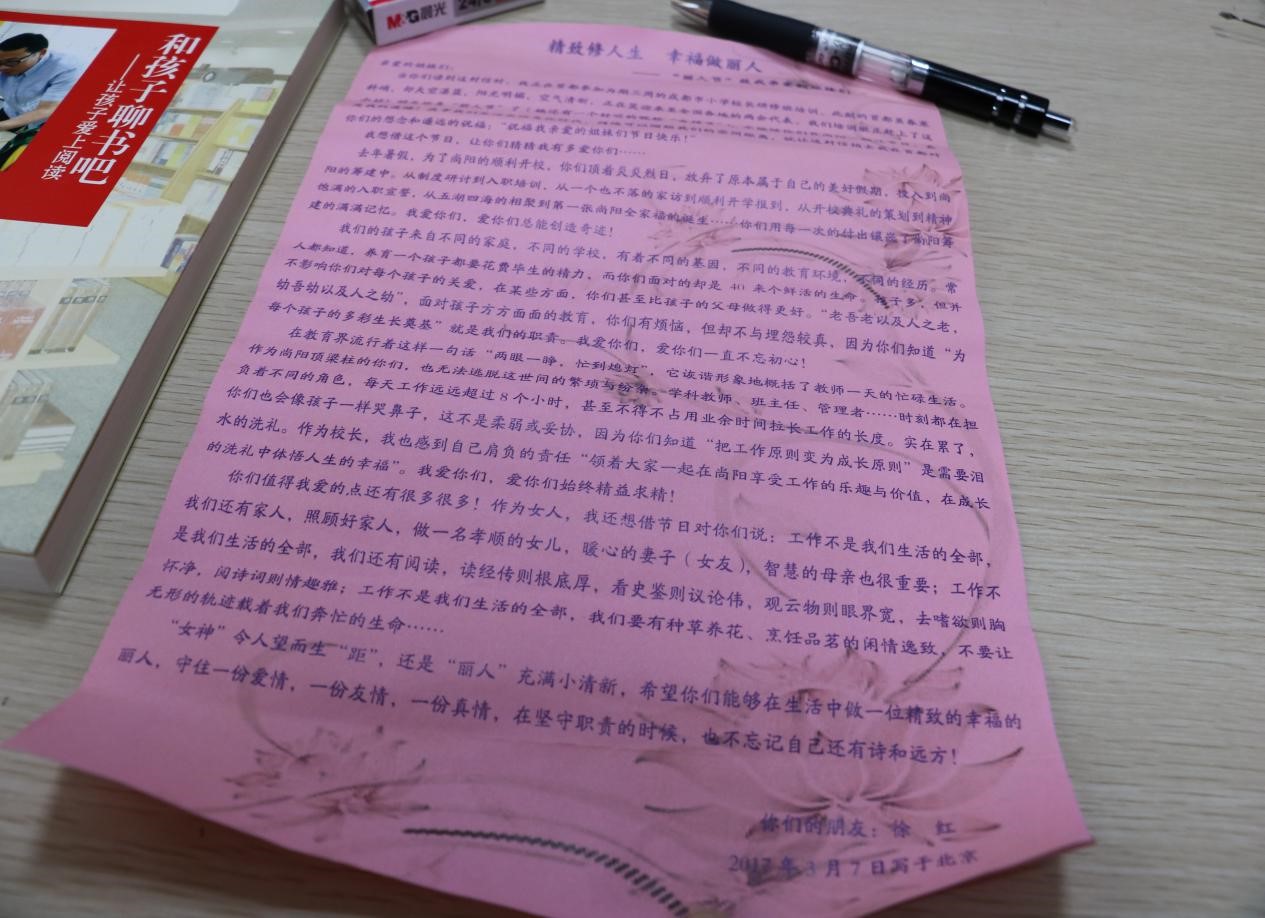 和孩子聊书吧
——让孩子爱上阅读
M&G晨光
精致修人生 幸福做丽人
亲爱的姐妹们：
当你们读到这封信时，我正在首都参加为期三周的成都市小学校长研修班培训，此刻的首都虽春寒
料峭，却天空湛蓝，阳光明媚，空气清新，正在笑迎来至全国各地的两会代表，我们培训班正赶上了这
你们的想念和遥远的祝福：“祝福我亲爱的姐妹们节日快乐！”
我想借这个节日，让你们猜猜我有多爱你们……
去年暑假，为了尚阳的顺利开校，你们顶着炎炎烈日，放弃了原本属于自己的美好假期，投入到尚
阳的筹建中。从制度研讨到入职培训，从一个也不落的家访到顺利开学报到，从开校典礼的策划到精神
饱满的入职宣誓，从五湖四海的相聚到第一张尚阳全家福的诞生……你们用每一次的付出镶嵌了尚阳筹
建的满满记忆。我爱你们，爱你们总能创造奇迹！
我们的孩子来自不同的家庭，不同的学校，有着不同的基因，不同的教育环境，不同的经历。常
人都知道，养育一个孩子都要花费毕生的精力，而你们面对的却是 40 来个鲜活的生命，孩子多，但并
不影响你们对每个孩子的关爱，在某些方面，你们甚至比孩子的父母做得更好。“老吾老以及人之老，
幼吾幼以及人之幼”，面对孩子方方面面的教育，你们有烦恼，但却不与埋怨较真，因为你们知道“为
每个孩子的多彩生长奠基”就是我们的职责。我爱你们，爱你们一直不忘初心！
在教育界流行着这样一句话“两眼一睁，忙到熄灯”，它诙谐形象地概括了教师一天的忙碌生活。
作为尚阳顶梁柱的你们，也无法逃脱这世间的繁琐与纷杂。学科教师、班主任、管理者……时刻都在担
负着不同的角色，每天工作远远超过 8 个小时，甚至不得不占用业余时间拉长工作的长度。实在累了，
你们也会像孩子一样哭鼻子，这不是柔弱或妥协，因为你们知道“把工作原则变为成长原则”是需要泪
水的洗礼。作为校长，我也感到自己肩负的责任“领着大家一起在尚阳享受工作的乐趣与价值，在成长
的洗礼中体悟人生的幸福”。我爱你们，爱你们始终精益求精！
你们值得我爱的点还有很多很多！作为女人，我还想借节日对你们说：工作不是我们生活的全部，
我们还有家人，照顾好家人，做一名孝顺的女儿，暖心的妻子（女友），智慧的母亲也很重要；工作不
是我们生活的全部，我们还有阅读，读经传则根底厚，看史鉴则议论伟，观云物则眼界宽，去嗜欲则胸
怀净，阅诗词则情趣雅；工作不是我们生活的全部，我们要有种草养花、烹饪品茗的闲情逸致，不要让
无形的轨迹载着我们奔忙的生命……
“女神”令人望而生“距”，还是“丽人”充满小清新，希望你们能够在生活中做一位精致的幸福的
丽人，守住一份爱情，一份友情，一份真情，在坚守职责的时候，也不忘记自己还有诗和远方！
你们的朋友：徐 红
2017 年 3 月 7 日写于北京